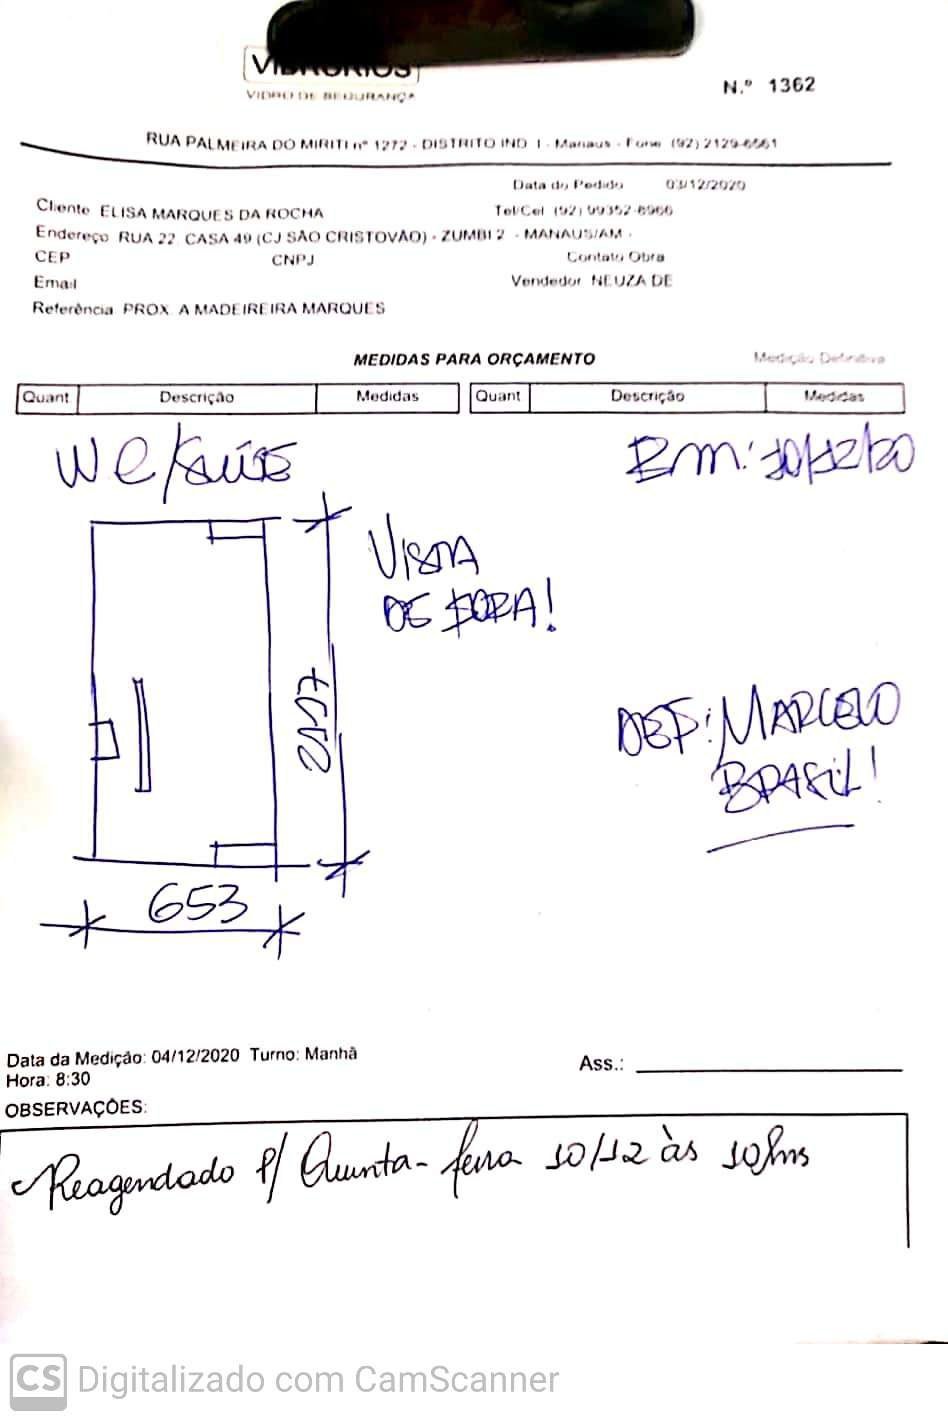 VIDRORIOS
VIDRO DE SEGURANÇA
N.º 1362
RUA PALMEIRA DO MIRITI nº 1272 - DISTRITO IND I - Manaus - Fone (92) 2129-6561
Data do Pedido 03/12/2020
Cliente ELISA MARQUES DA ROCHA
Tel/Cel (92) 99352-8966
Endereço RUA 22 CASA 49 (CJ SÃO CRISTOVÃO) - ZUMBI 2 - MANAUS/AM -
CEP CNPJ Contato Obra
Email Vendedor NEUZA DE
Referência PROX A MADEIREIRA MARQUES
MEDIDAS PARA ORÇAMENTO Medição Definitiva
Quant Descrição Medidas Quant Descrição Medidas
WC/SUÍTE
EM: 10/12/20
VISTA
DE FORA!
2117
DEF: MARCELO
BRASIL!
653
Data da Medição: 04/12/2020 Turno: Manhã
Hora: 8:30
Ass.:
OBSERVAÇÕES:
Reagendado p/ Quinta-feira 10/12 às 10hrs
CS Digitalizado com CamScanner